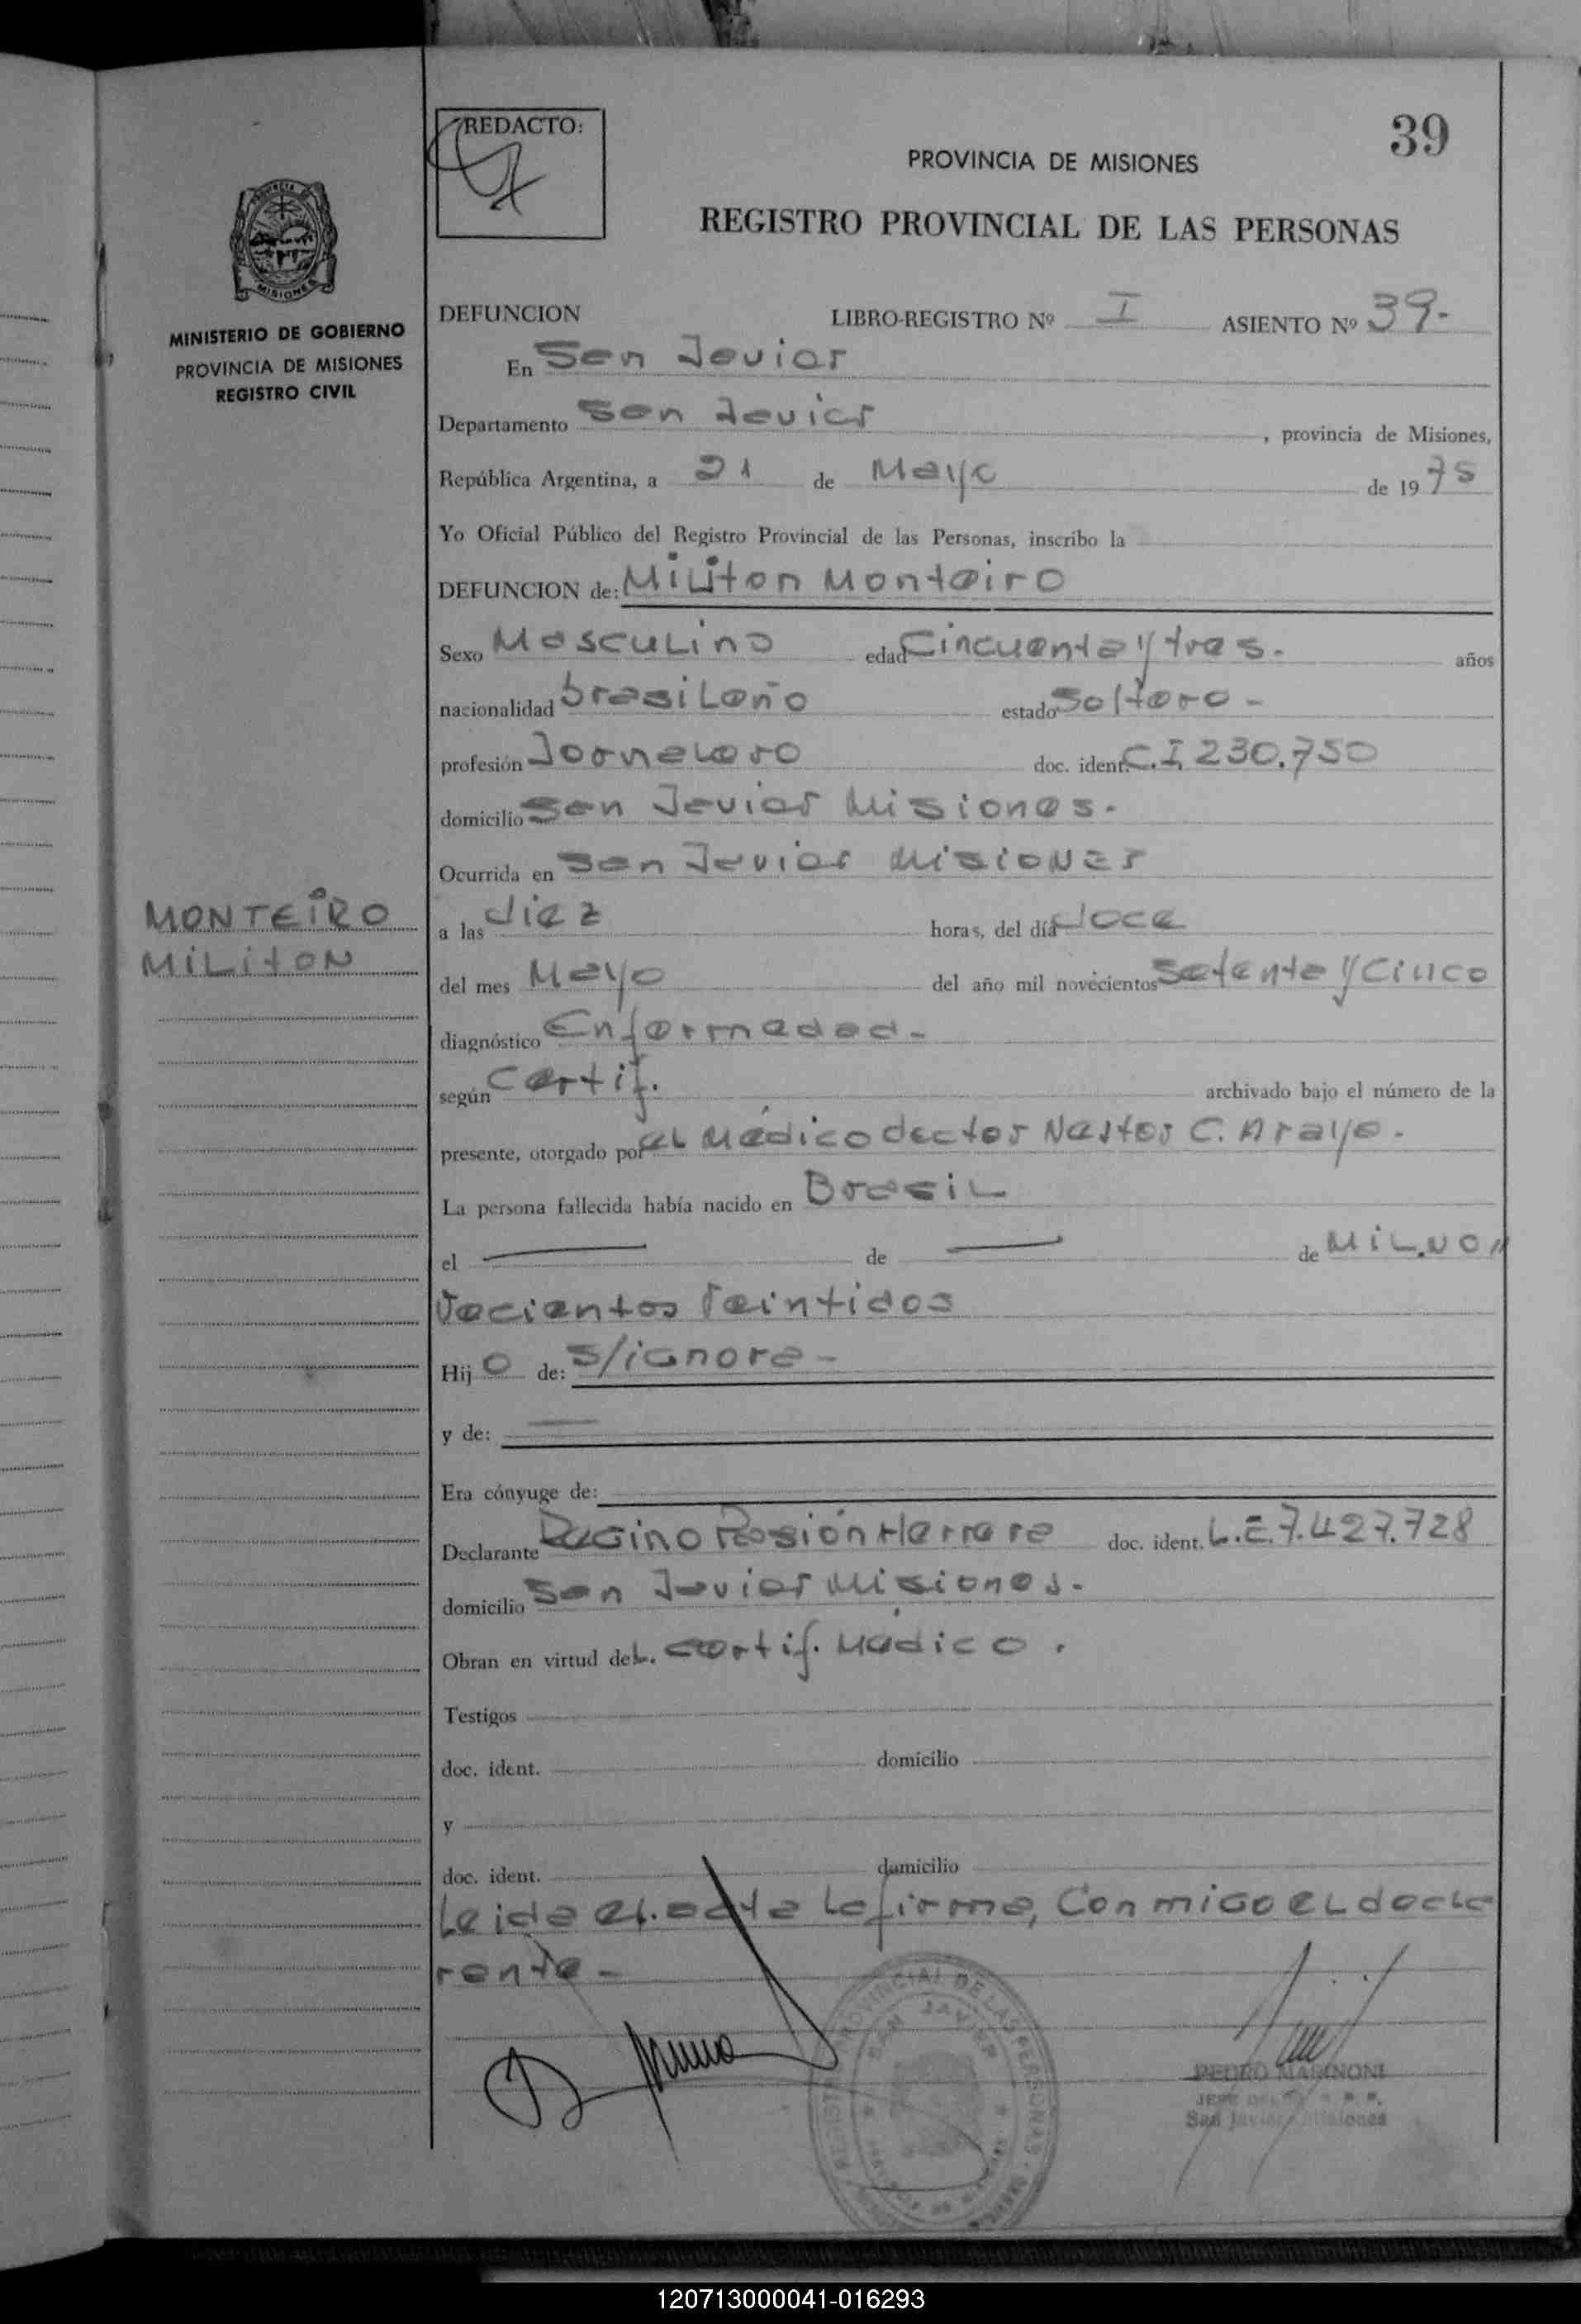 REDACTO:
39
PROVINCIA DE MISIONES
REGISTRO PROVINCIAL DE LAS PERSONAS
MINISTERIO DE GOBIERNO
PROVINCIA DE MISIONES
REGISTRO CIVIL
DEFUNCION LIBRO-REGISTRO Nº I ASIENTO Nº 39-
En San Javier
Departamento San Javier , provincia de Misiones,
República Argentina, a 21 de Mayo de 1975
Yo Oficial Público del Registro Provincial de las Personas, inscribo la
DEFUNCION de: Militon Monteiro
Sexo Masculino edad Cincuenta y tres. años
nacionalidad brasileño estado Soltero -
profesión Jornalero doc. ident. C.I 230.750
domicilio San Javier Misiones.
Ocurrida en San Javier Misiones
MONTEIRO
MILITON
a las diez horas, del día doce
del mes Mayo del año mil novecientos Setenta y Cinco
diagnóstico Enfermedad -
según Certif. archivado bajo el número de la
presente, otorgado por el Médico doctor Nestor C. Arayo.
La persona fallecida había nacido en Brasil
el — de — de MIL.NO
Vecientos Veintidos
Hijo de: s/ignora -
y de: —
Era cónyuge de:
Declarante Herrera doc. ident. L.E.7.427.728
domicilio San Javier Misiones.
Obran en virtud del. certif. Médico.
Testigos
doc. ident. domicilio
y
doc. ident. domicilio
Leida el acta la firma, Conmigo el decla
rante -
PROVINCIAL DE LAS PERSONAS
SAN JAVIER
PEDRO MARINONI
San Javier Misiones
120713000041-016293